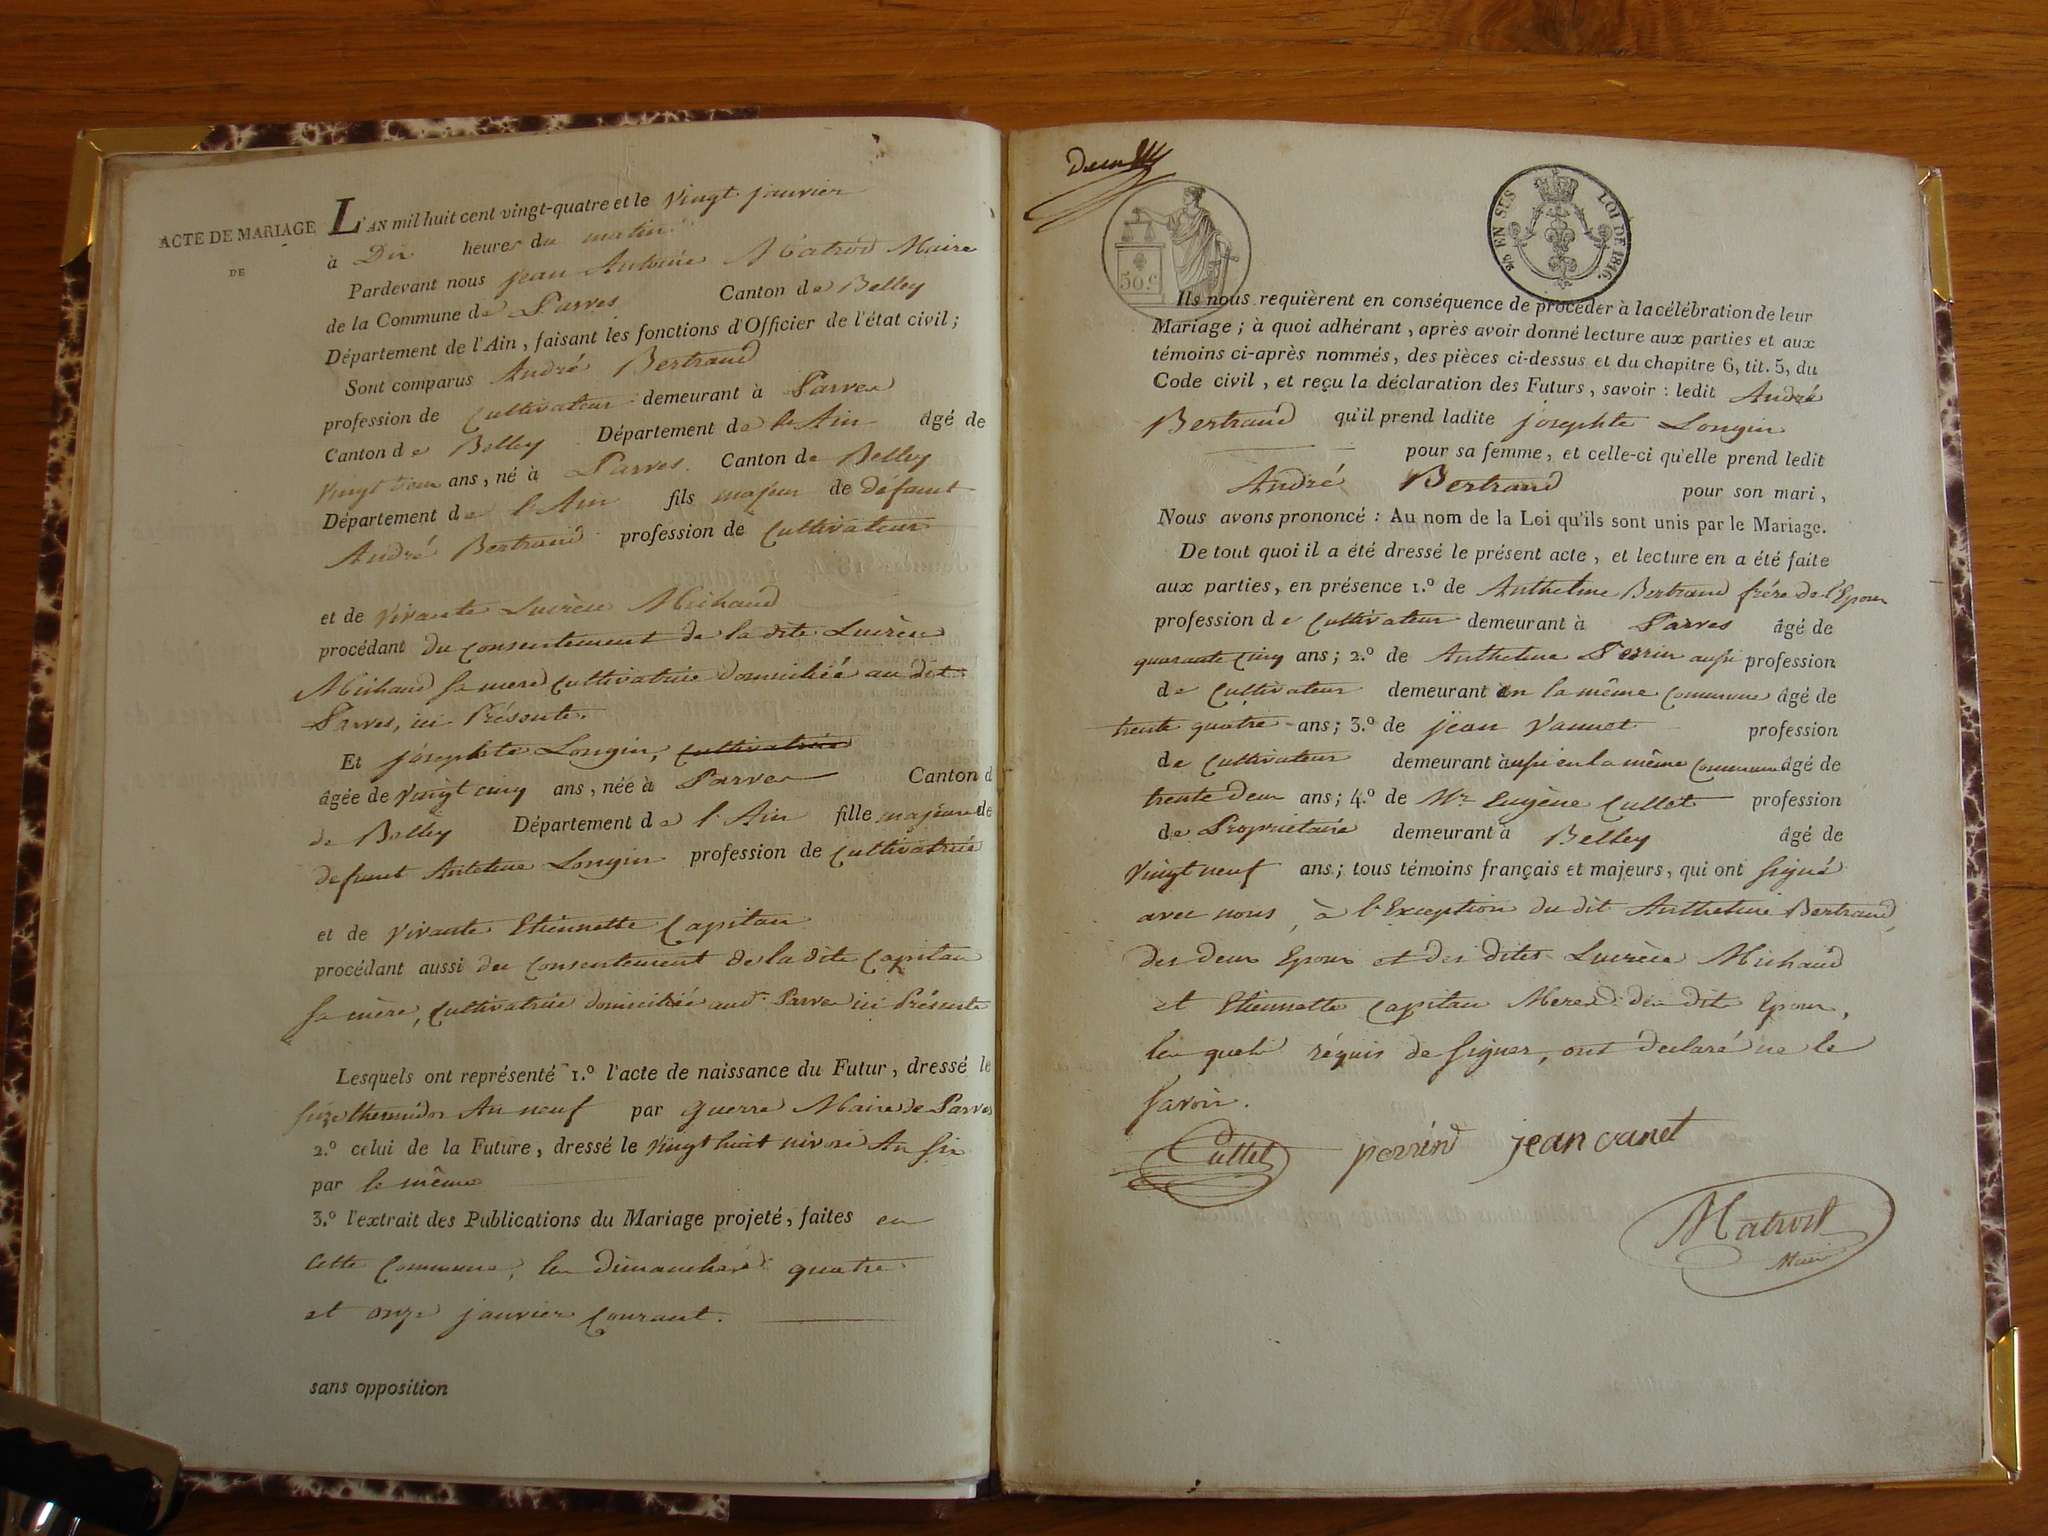 ACTE DE MARIAGE
DE
L'AN mil huit cent vingt-quatre et le vingt janvier
à Dix heures du matin
Pardevant nous jean Antoine Matrod Maire
de la Commune de Parves Canton de Belley
Département de l'Ain, faisant les fonctions d'Officier de l'état civil;
Sont comparus André Bertrand
profession de Cultivateur demeurant à Parves
Canton de Belley Département de l'Ain âgé de
vingt ans, né à Parves. Canton de Belley
Département de l'Ain fils majeur de défunt
André Bertrand profession de Cultivateur
et de vivante Lucrèce Michaud
procédant du consentement de la dite Lucrèce
Michaud sa mere cultivatrice domiciliée au dit
Parves, ici Présente.
Et josephte Longin, cultivatrice
âgée de vingt cinq ans, née à Parves Canton d
de Belley Département de l'Ain fille majeure de
defunt Antelme Longin profession de cultivatrice
et de vivante Etiennette Capitan
procédant aussi du consentement de la dite Capitan
sa mère, cultivatrice domiciliée aud.t Parves ici Présente
Lesquels ont représenté 1.º l'acte de naissance du Futur, dressé le
seize thermidor An neuf par guerre Maire de Parves
2.º celui de la Future, dressé le vingt huit nivose An six
par le même
3.º l'extrait des Publications du Mariage projeté, faites en
cette Commune, les dimanches quatre
et onze janvier courant.
sans opposition
deux
50 C
EN SUS LOI DE 1816.
Ils nous requièrent en conséquence de procéder à la célébration de leur
Mariage; à quoi adhérant, après avoir donné lecture aux parties et aux
témoins ci-après nommés, des pièces ci-dessus et du chapitre 6, tit. 5, du
Code civil, et reçu la déclaration des Futurs, savoir: ledit André
Bertrand qu'il prend ladite josephte Longin
pour sa femme, et celle-ci qu'elle prend ledit
André Bertrand pour son mari,
Nous avons prononcé: Au nom de la Loi qu'ils sont unis par le Mariage.
De tout quoi il a été dressé le présent acte, et lecture en a été faite
aux parties, en présence 1.º de Anthelme Bertrand frére de l'Epoux
profession de Cultivateur demeurant à Parves âgé de
quarante cinq ans; 2.º de Anthelme Perrin aussi profession
de Cultivateur demeurant en la même commune âgé de
trente quatre ans; 3.º de jean Vannet profession
de Cultivateur demeurant aussi en la même commune âgé de
trente deux ans; 4.º de Mr Eugène Cullet profession
de Propriétaire demeurant à Belley âgé de
vingt neuf ans; tous témoins français et majeurs, qui ont signé
avec nous, à l'Exception du dit Anthelme Bertrand,
des deux Epoux et des dites Lucrèce Michaud
et Etiennette Capitan Meres des dit Epoux,
les quels réquis de signer, ont déclaré ne le
savoir.
Cullet perrin jean vanet
Matrod
Maire